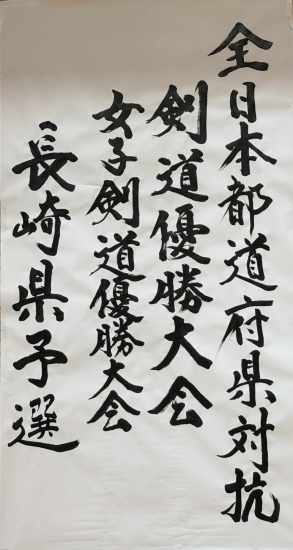 全日本都道府県対抗
剣道優勝大会
女子剣道優勝大会
長崎県予選